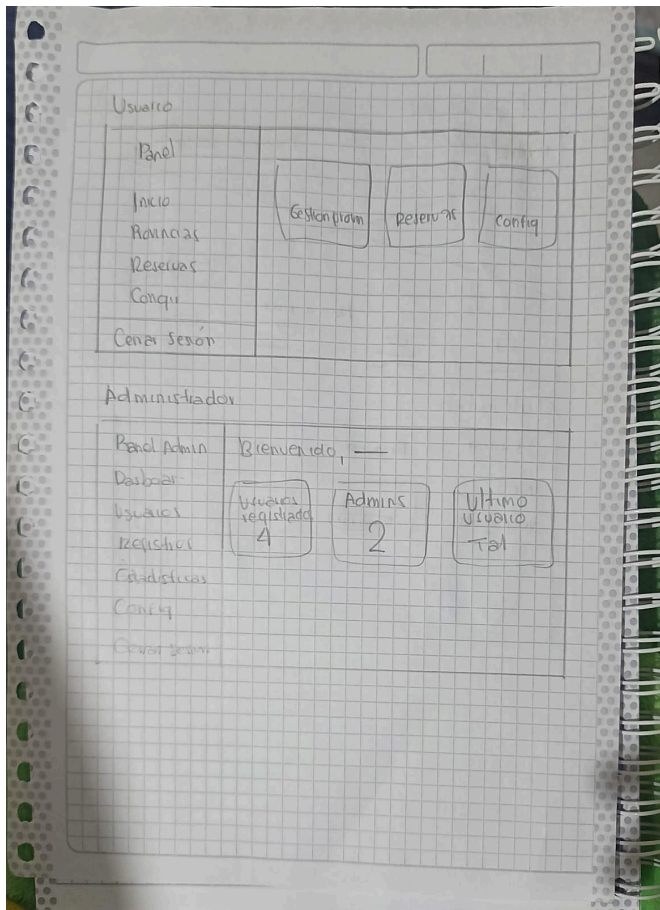 Usuario
Panel
Inicio
Provincias
Reservas
Cerrar sesión
Gestion provin
Reservas
Config
Administrador
Panel Admin
Bienvenido, —
Dasboar
Usuarios
Registros
Estadisticas
Config
Cerrar sesion
Usuarios
registrado
4
Admins
2
Ultimo
usuario
Tal